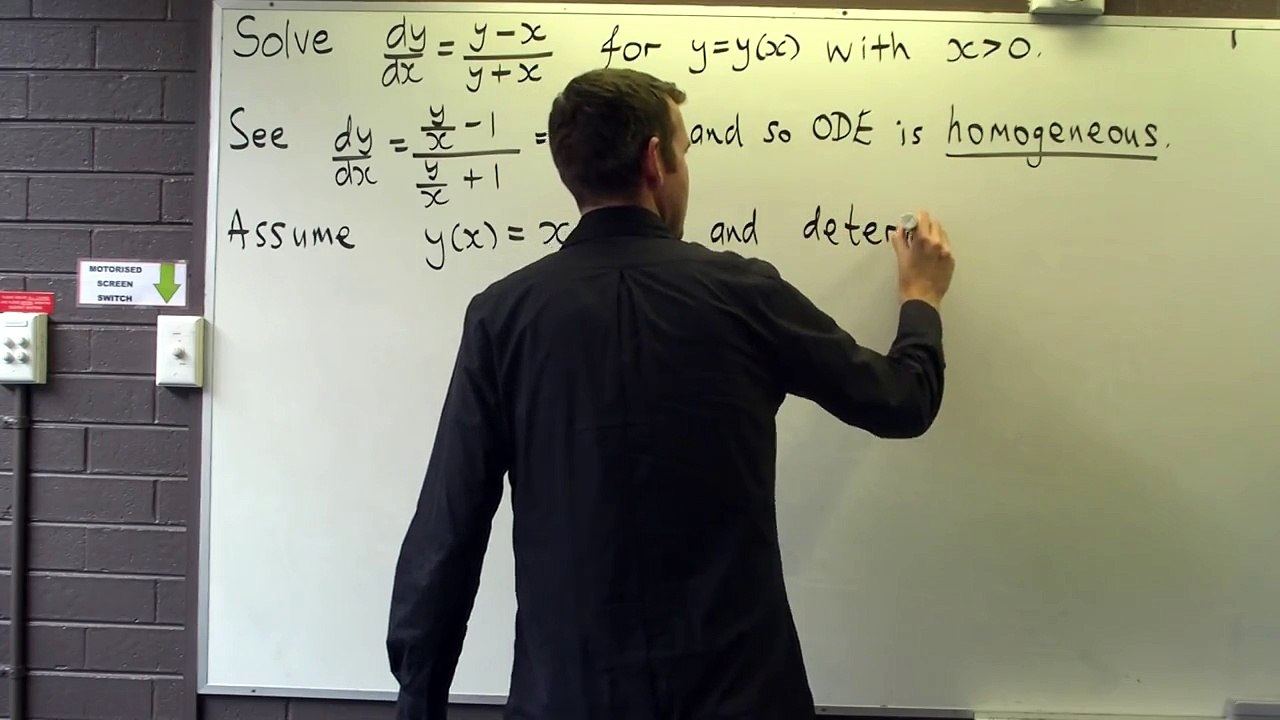 Solve dy/dx = y-x/y+x for y=y(x) with x>0.
See dy/dx = y/x -1 / y/x +1 = and so ODE is homogeneous.
Assume y(x) = x and deter
MOTORISED
SCREEN
SWITCH